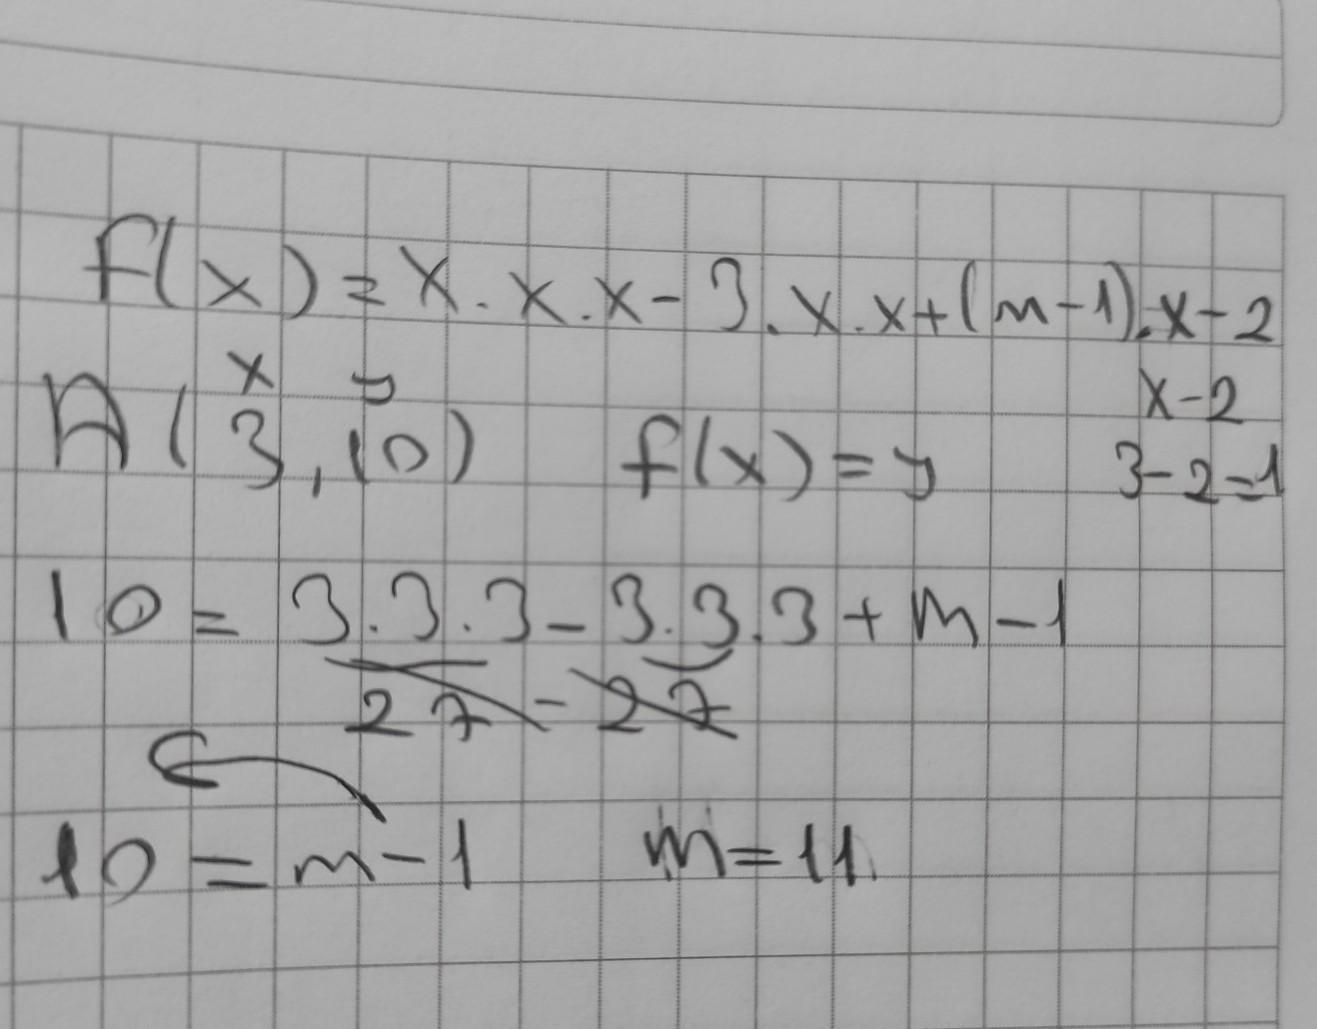 f(x) = x . x . x - 3 . x . x + (m - 1) . x - 2
x y x - 2
A ( 3 , 10 ) f(x) = y 3 - 2 = 1
10 = 3 . 3 . 3 - 3 . 3 . 3 + m - 1
27 - 27
10 = m - 1 m = 11